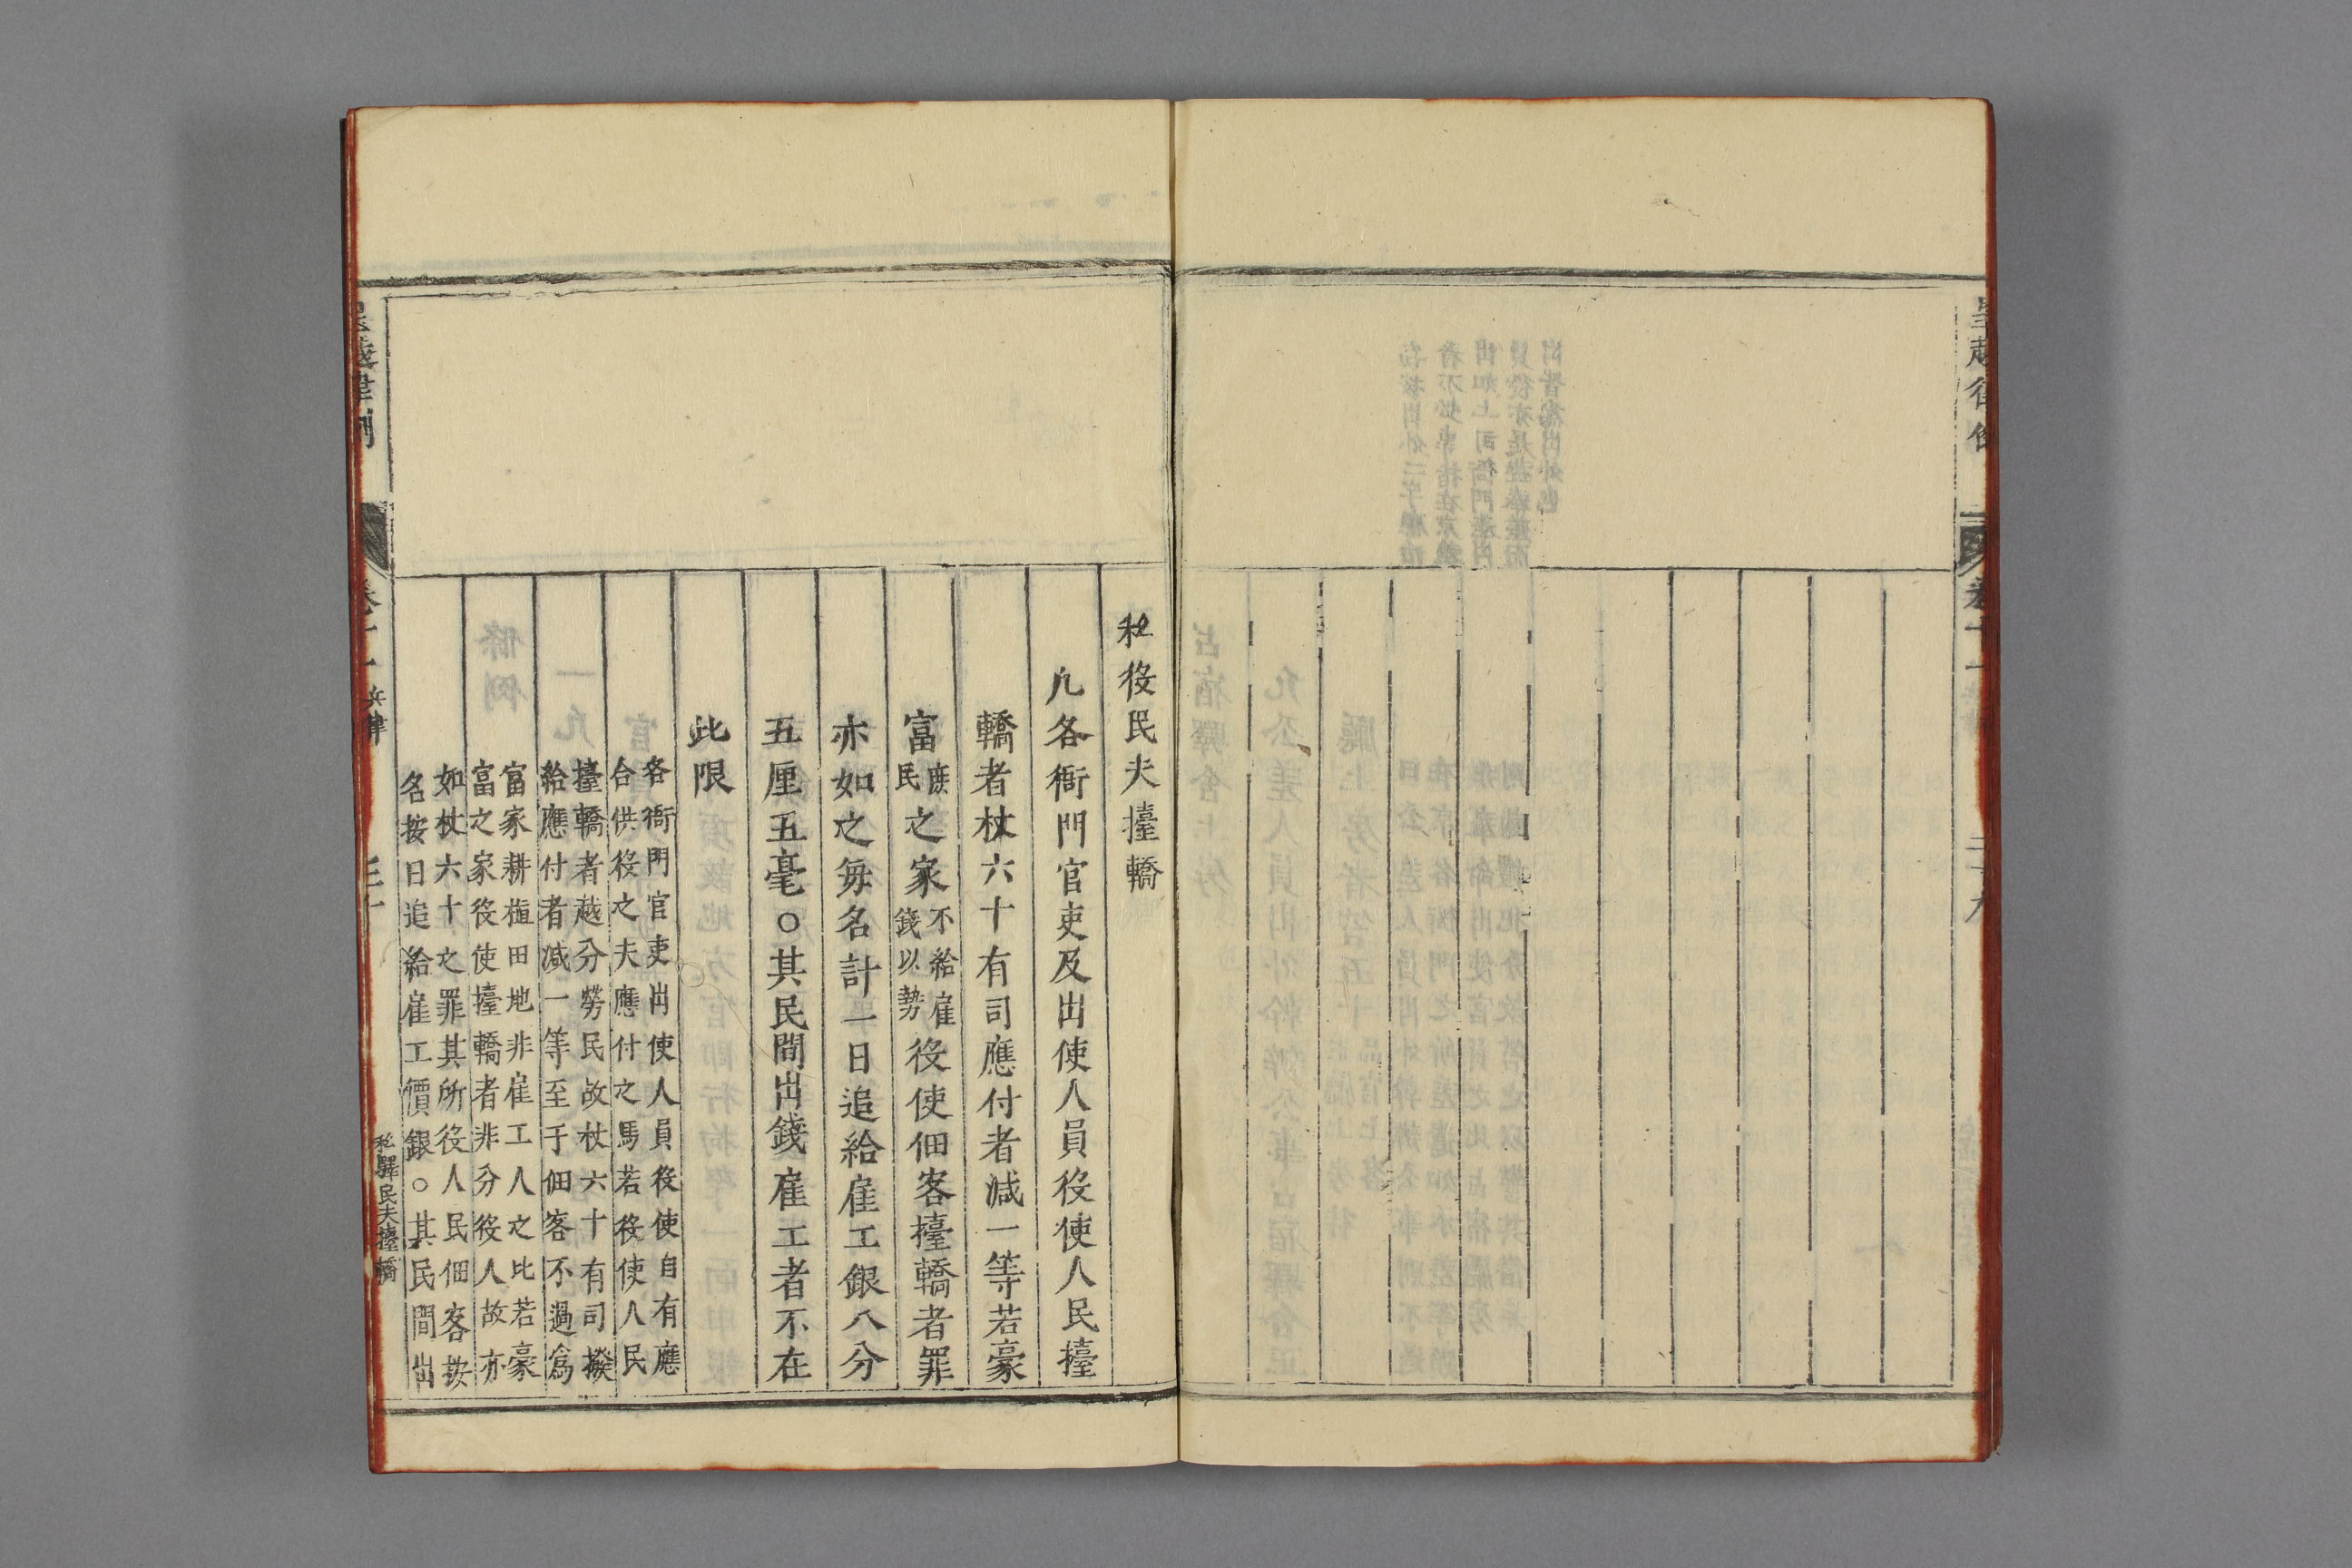 私役民夫擡轎
凡各衙門官吏及出使人員役使人民擡
轎者杖六十有司應付者減一等若豪
富庶民之家不給雇錢以勢役使佃客擡轎者罪
亦如之每名計一日追給雇工銀八分
五厘五毫○其民間出錢雇工者不在
此限
各衙門官吏出使人員役使自有應
合供役之夫應付之馬若役使人民
擡轎者越分勞民故杖六十有司撥
給應付者減一等至于佃客不過爲
富家耕植田地非雇工人之比若豪
富之家役使擡轎者非分役人故亦
如杖六十之罪其所役人民佃客按
名按日追給雇工價銀○其民間出
皇越律例
卷十一
兵律
三十
私驛民夫擡轎